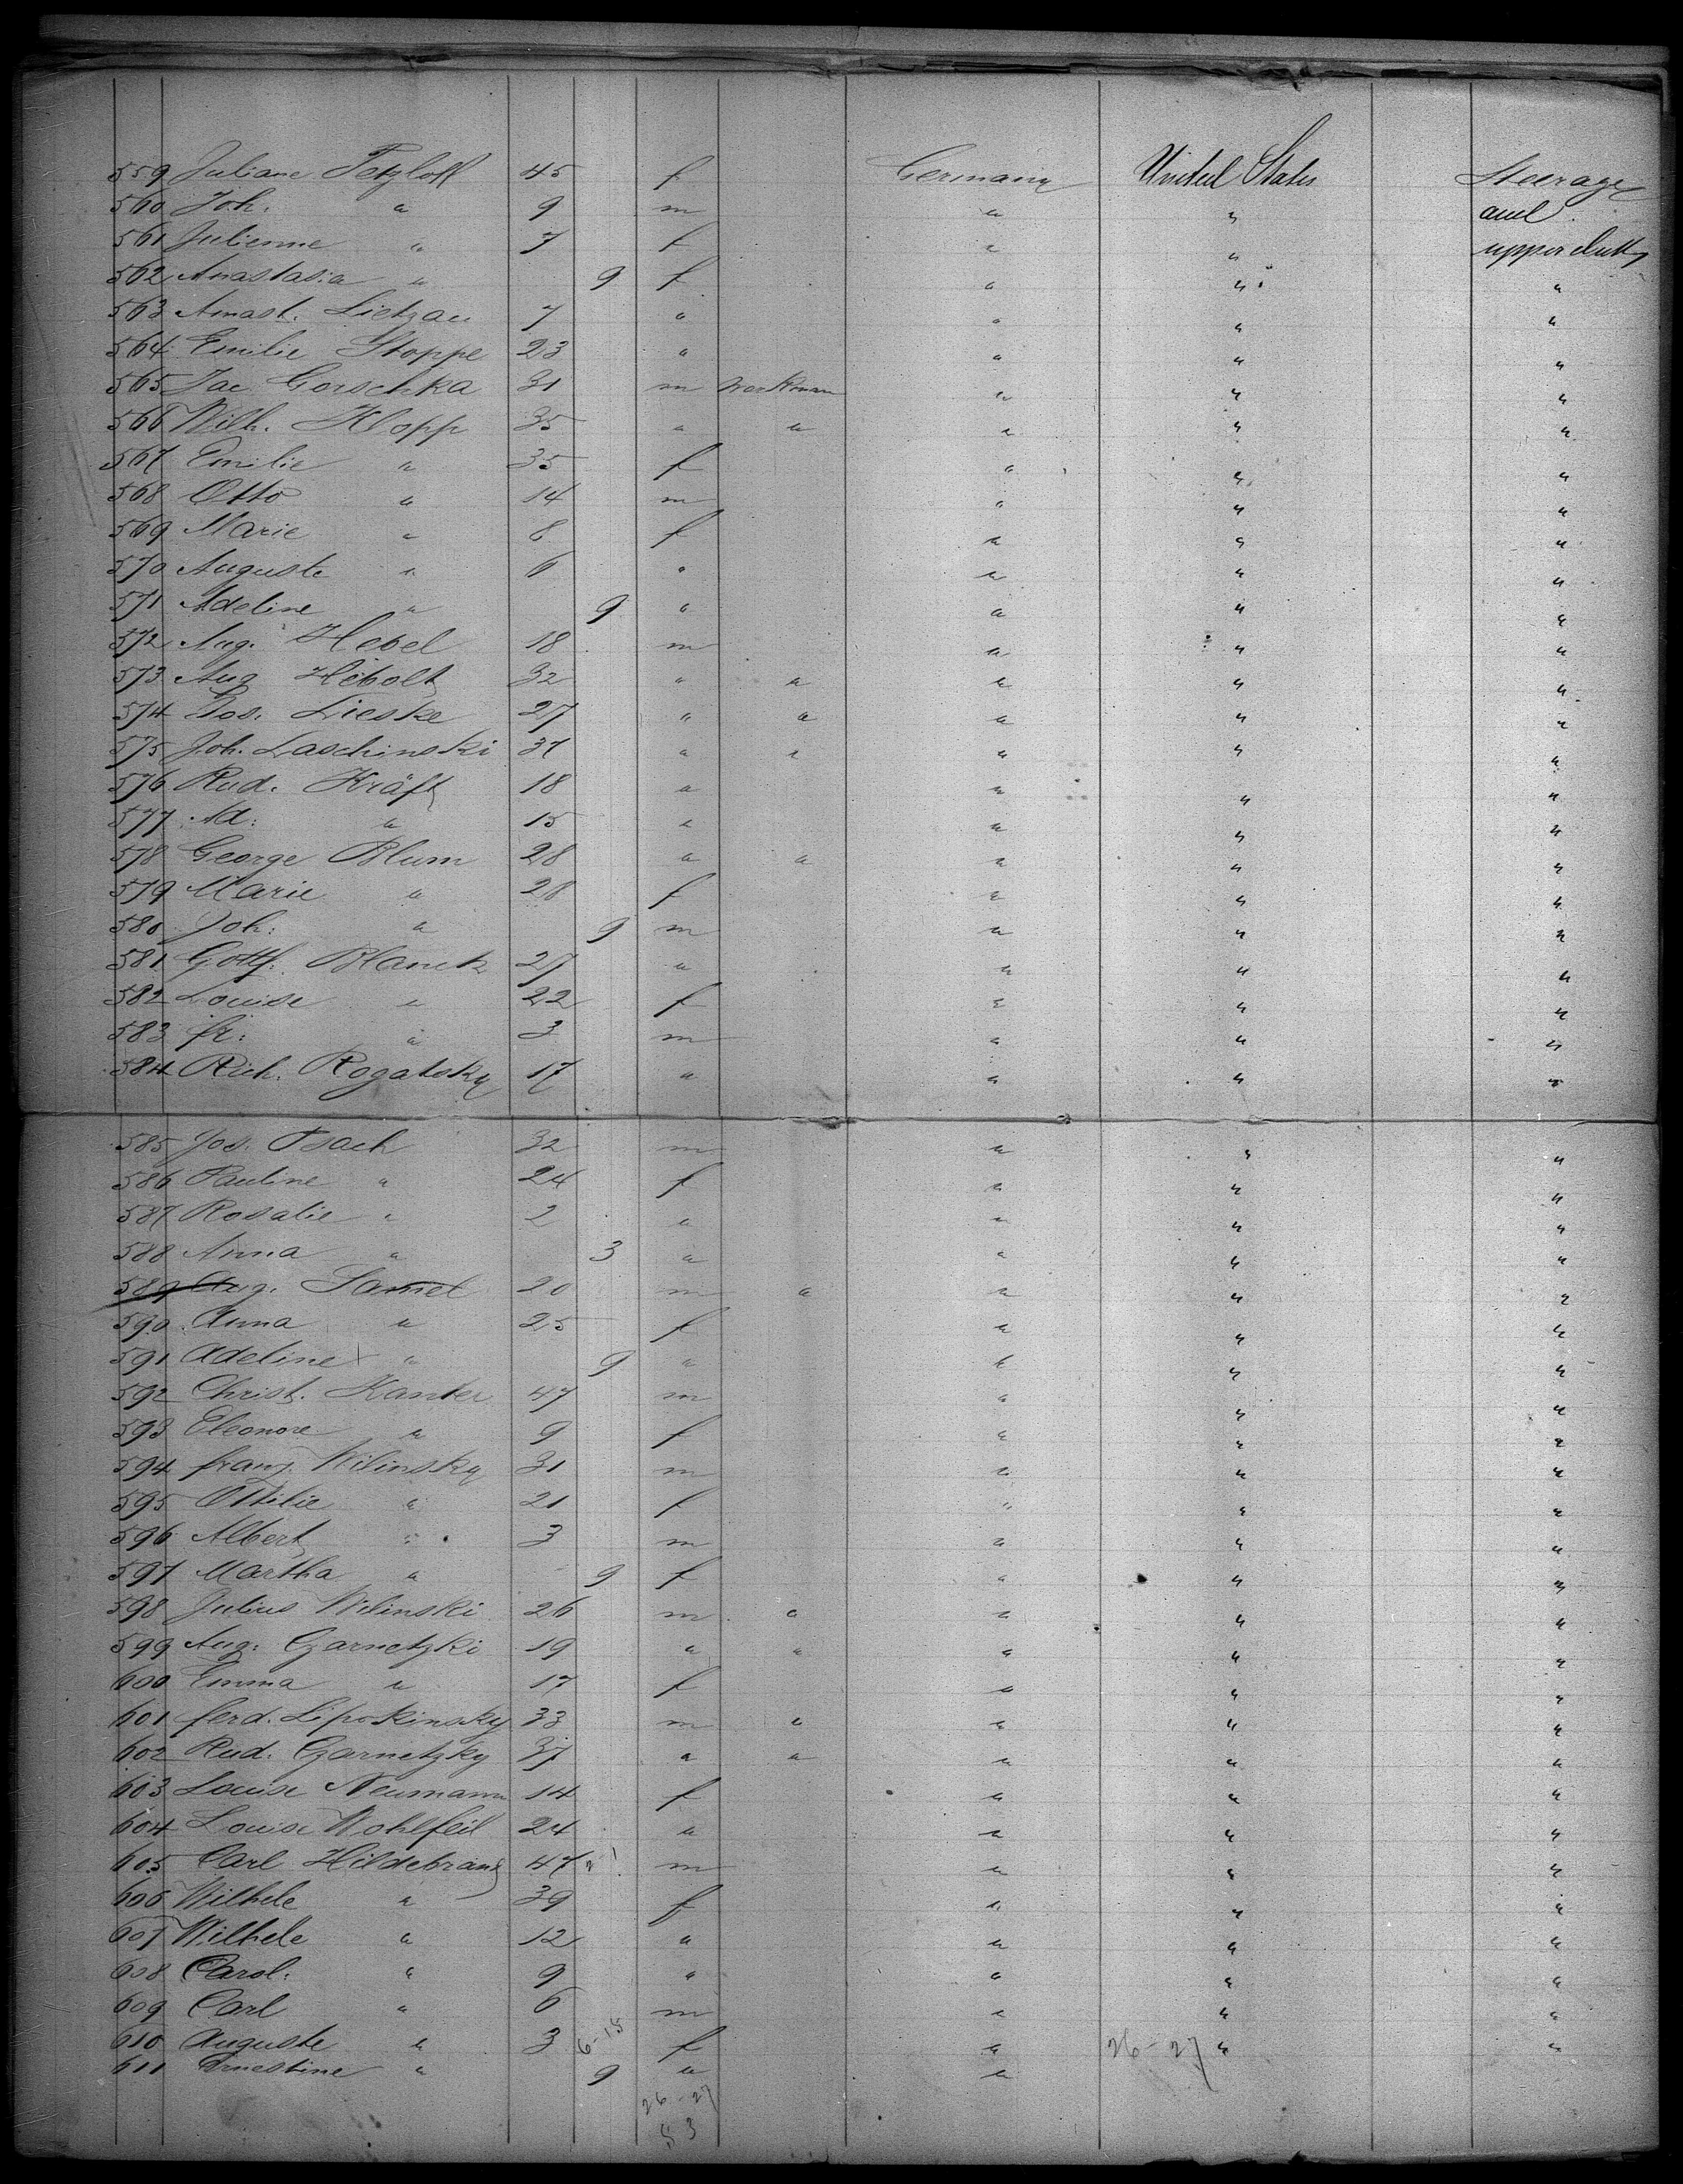 559 Juliane Tetzloff 45 f Germany United States Steerage
560 Joh. " 9 m " " and
561 Julienne " 7 f " " upper deck
562 Anastasia " 9 f " " "
563 Anast. Lietzau 7 " " " "
564 Emilie Stoppe 23 " " " "
565 Jac Gorschka 31 m Workman " " "
566 Wilh. Klopp 35 " " " " "
567 Emilie " 35 f " " "
568 Otto " 14 m " " "
569 Marie " 8 f " " "
570 Auguste " 6 " " " "
571 Adeline " 9 " " " "
572 Aug. Hebel 18 m " " "
573 Aug Hebolt 32 " " " " "
574 Jos. Lieske 27 " " " " "
575 Joh. Laschinski 37 " " " " "
576 Rud. Kräft 18 " " " "
577 Ad: " 15 " " " "
578 George Blum 28 " " " " "
579 Marie " 28 f " " "
580 Joh: " 9 m " " "
581 Gottf. Blanck 27 " " " "
582 Louise " 22 f " " "
583 fr: " 3 m " " "
584 Rich. Rogatsky 17 " " " "
585 Jos. 32 m " " "
586 Pauline " 24 f " " "
587 Rosalie " 2 " " " "
588 Anna " 3 " " " "
589 Aug. Samet 20 m " " " "
590 Anna " 25 f " " "
591 Adeline " 9 " " " "
592 Christ. Kanter 47 m " " "
593 Eleonore " 9 f " " "
594 franz. Wilinsky 31 m " " "
595 Ottilie " 21 f " " "
596 Albert " 3 m " " "
597 Martha " 9 f " " "
598 Julius Wilinski 26 m " " " "
599 Aug: Czarnetzki 19 " " " " "
600 Emma " 17 f " " "
601 ferd. Lipokinsky 33 m " " " "
602 Rud. Czarnetzky 37 " " " " "
603 Louise Neumann 14 f " " "
604 Louise Wohlfeil 24 " " " "
605 Carl Hildebrand 47 m " " "
606 Wilhele " 39 f " " "
607 Wilhele " 12 " " " "
608 Carol: " 9 " " " "
609 Carl " 6 m " " "
610 Auguste " 3 6-15 f " 26-27 " "
611 Ernestine " 9 " "
26-27
53